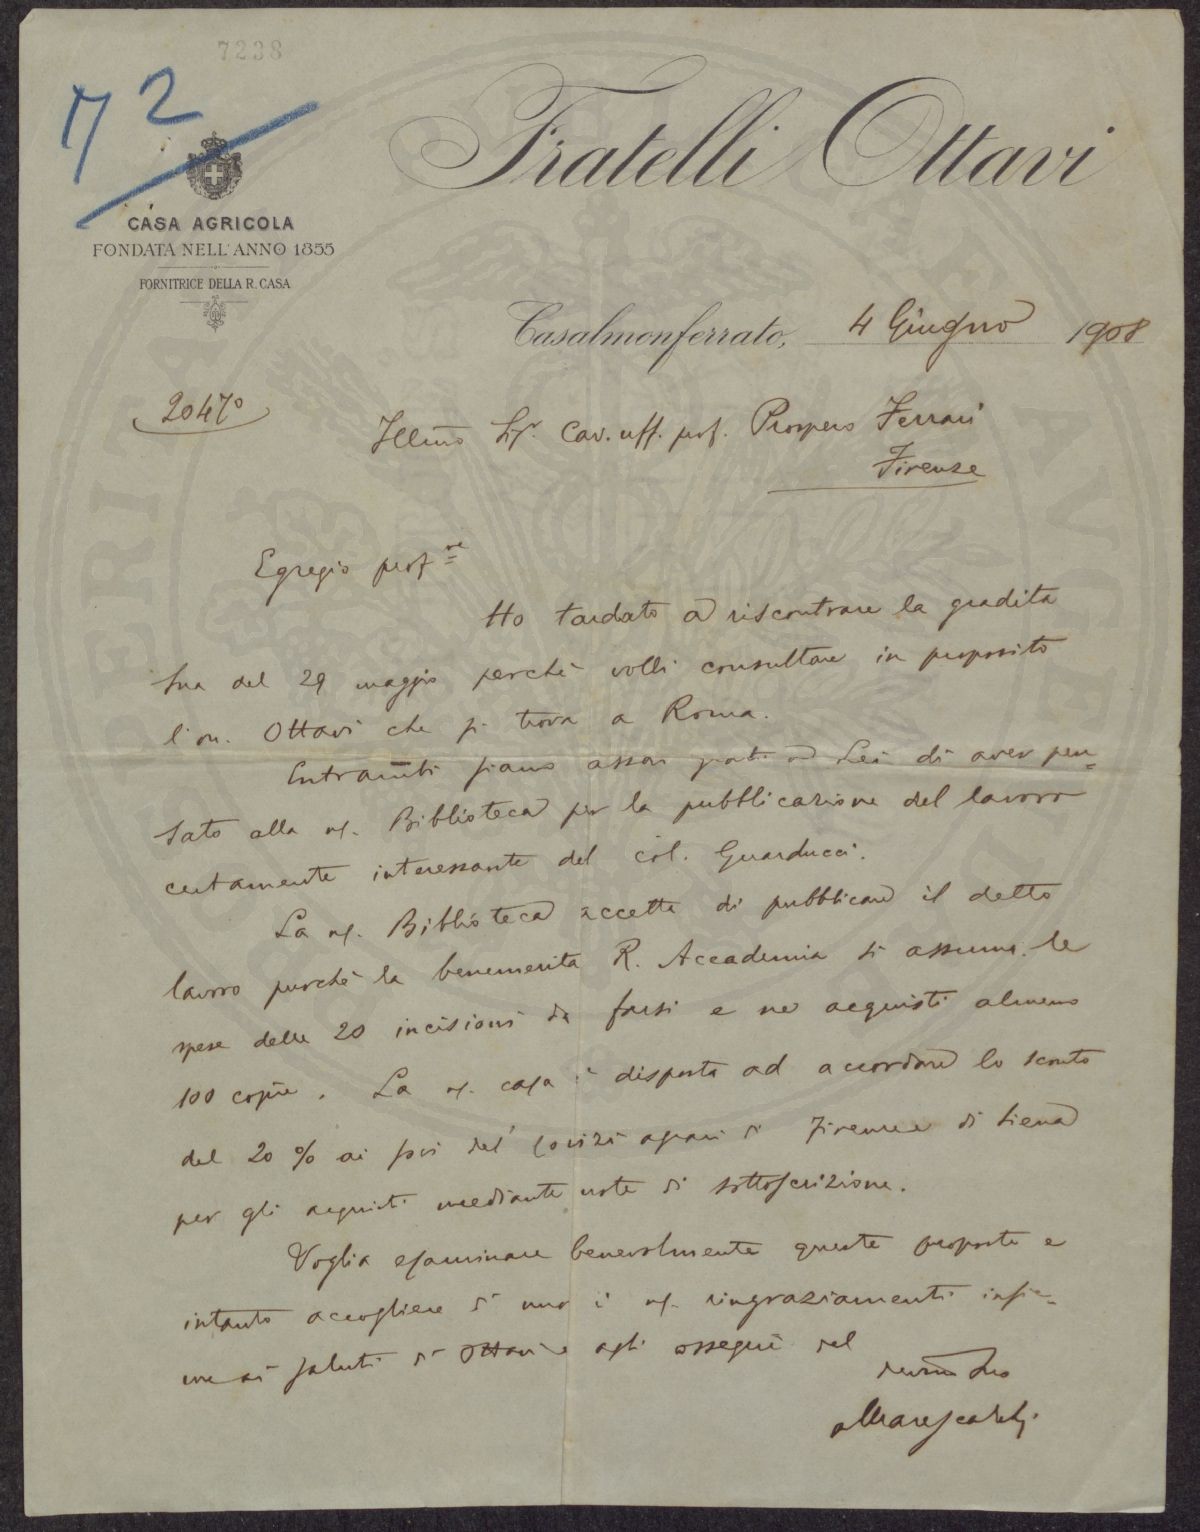 7238
72
Fratelli Ottavi
CASA AGRICOLA
FONDATA NELL'ANNO 1855
FORNITRICE DELLA R. CASA
Casalmonferrato, 4 Giugno 1908
20470
Illmo Sr. Cav. uff. prof. Prospero Ferrari
Firenze
Egregio profre
Ho tardato a riscontrare la gradita
Sua del 29 maggio perchè volli consultare in proposito
l'on. Ottavi che si trova a Roma.
Entrambi siamo assai grati a Lei di aver pen=
sato alla ns. Biblioteca per la pubblicazione del lavoro
certamente interessante del col. Guarducci.
La ns. Biblioteca accetta di pubblicare il detto
lavoro purchè la benemerita R. Accademia si assuma le
spese delle 20 incisioni da farsi e ne acquisti almeno
100 copie. La ns. casa è disposta ad accordare lo sconto
del 20 % ai soci dei Comizi agrari di Firenze e di Siena
per gli acquisti mediante note di sottoscrizione.
Voglia esaminare benevolmente queste proposte e
intanto accogliere i ns. ringraziamenti insie=
me ai saluti di Ottavi e agli ossequi del
devmo Suo
Marescalchi